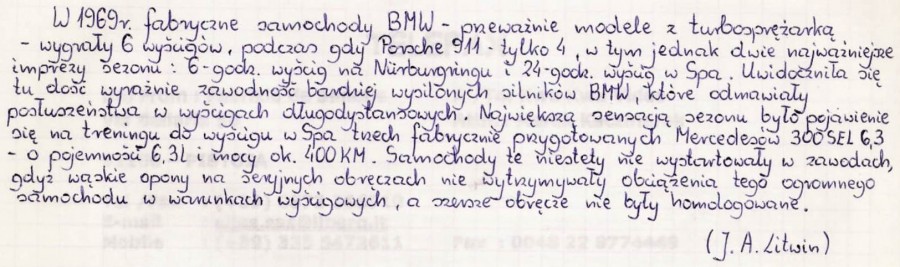 W 1969r. fabryczne samochody BMW - przeważnie modele z turbosprężarką
- wygrały 6 wyścigów, podczas gdy Porsche 911 - tylko 4, w tym jednak dwie najważniejsze
imprezy sezonu : 6-godz. wyścig na Nürburgringu i 24-godz. wyścig w Spa. Uwidoczniła się
tu dość wyraźnie zawodność bardziej wysilonych silników BMW, które odmawiały
posłuszeństwa w wyścigach długodystansowych. Największą sensacją sezonu było pojawienie
się na treningu do wyścigu w Spa trzech fabrycznie przygotowanych Mercedesów 300 SEL 6,3
- o pojemność 6,3l i mocy ok. 400 KM. Samochody te niestety nie wystartowały w zawodach,
gdyż wąskie opony na seryjnych obręczach nie wytrzymywały obciążenia tego ogromnego
samochodu w warunkach wyścigowych, a szersze obręcze nie były homologowane.
(J. A. Litwin)